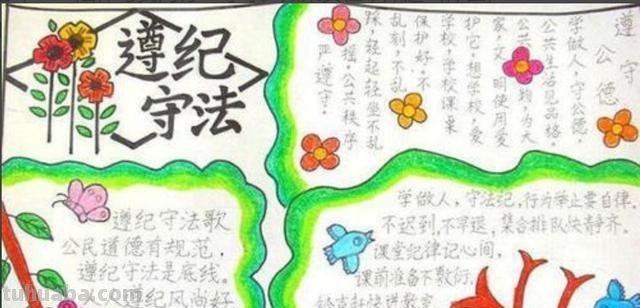 遵纪
守法
遵守公德
学做人,守公德,
公共生活见品格。
公共财物,为大
家,文明使用爱
护它,想学校,爱
学校,学校课桌
保护好。不
乱刻,不乱
踩,轻起轻坐不乱
摇。公共秩序
严遵守。
遵纪守法歌
公民道德有规范,
遵纪守法是底线。
遵纪风尚好
学做人,守法纪,行为举止要自律。
不迟到,不早退,集合排队快静齐。
课堂纪律记心间,
课前准备不敷衍。
tuhuaba.com